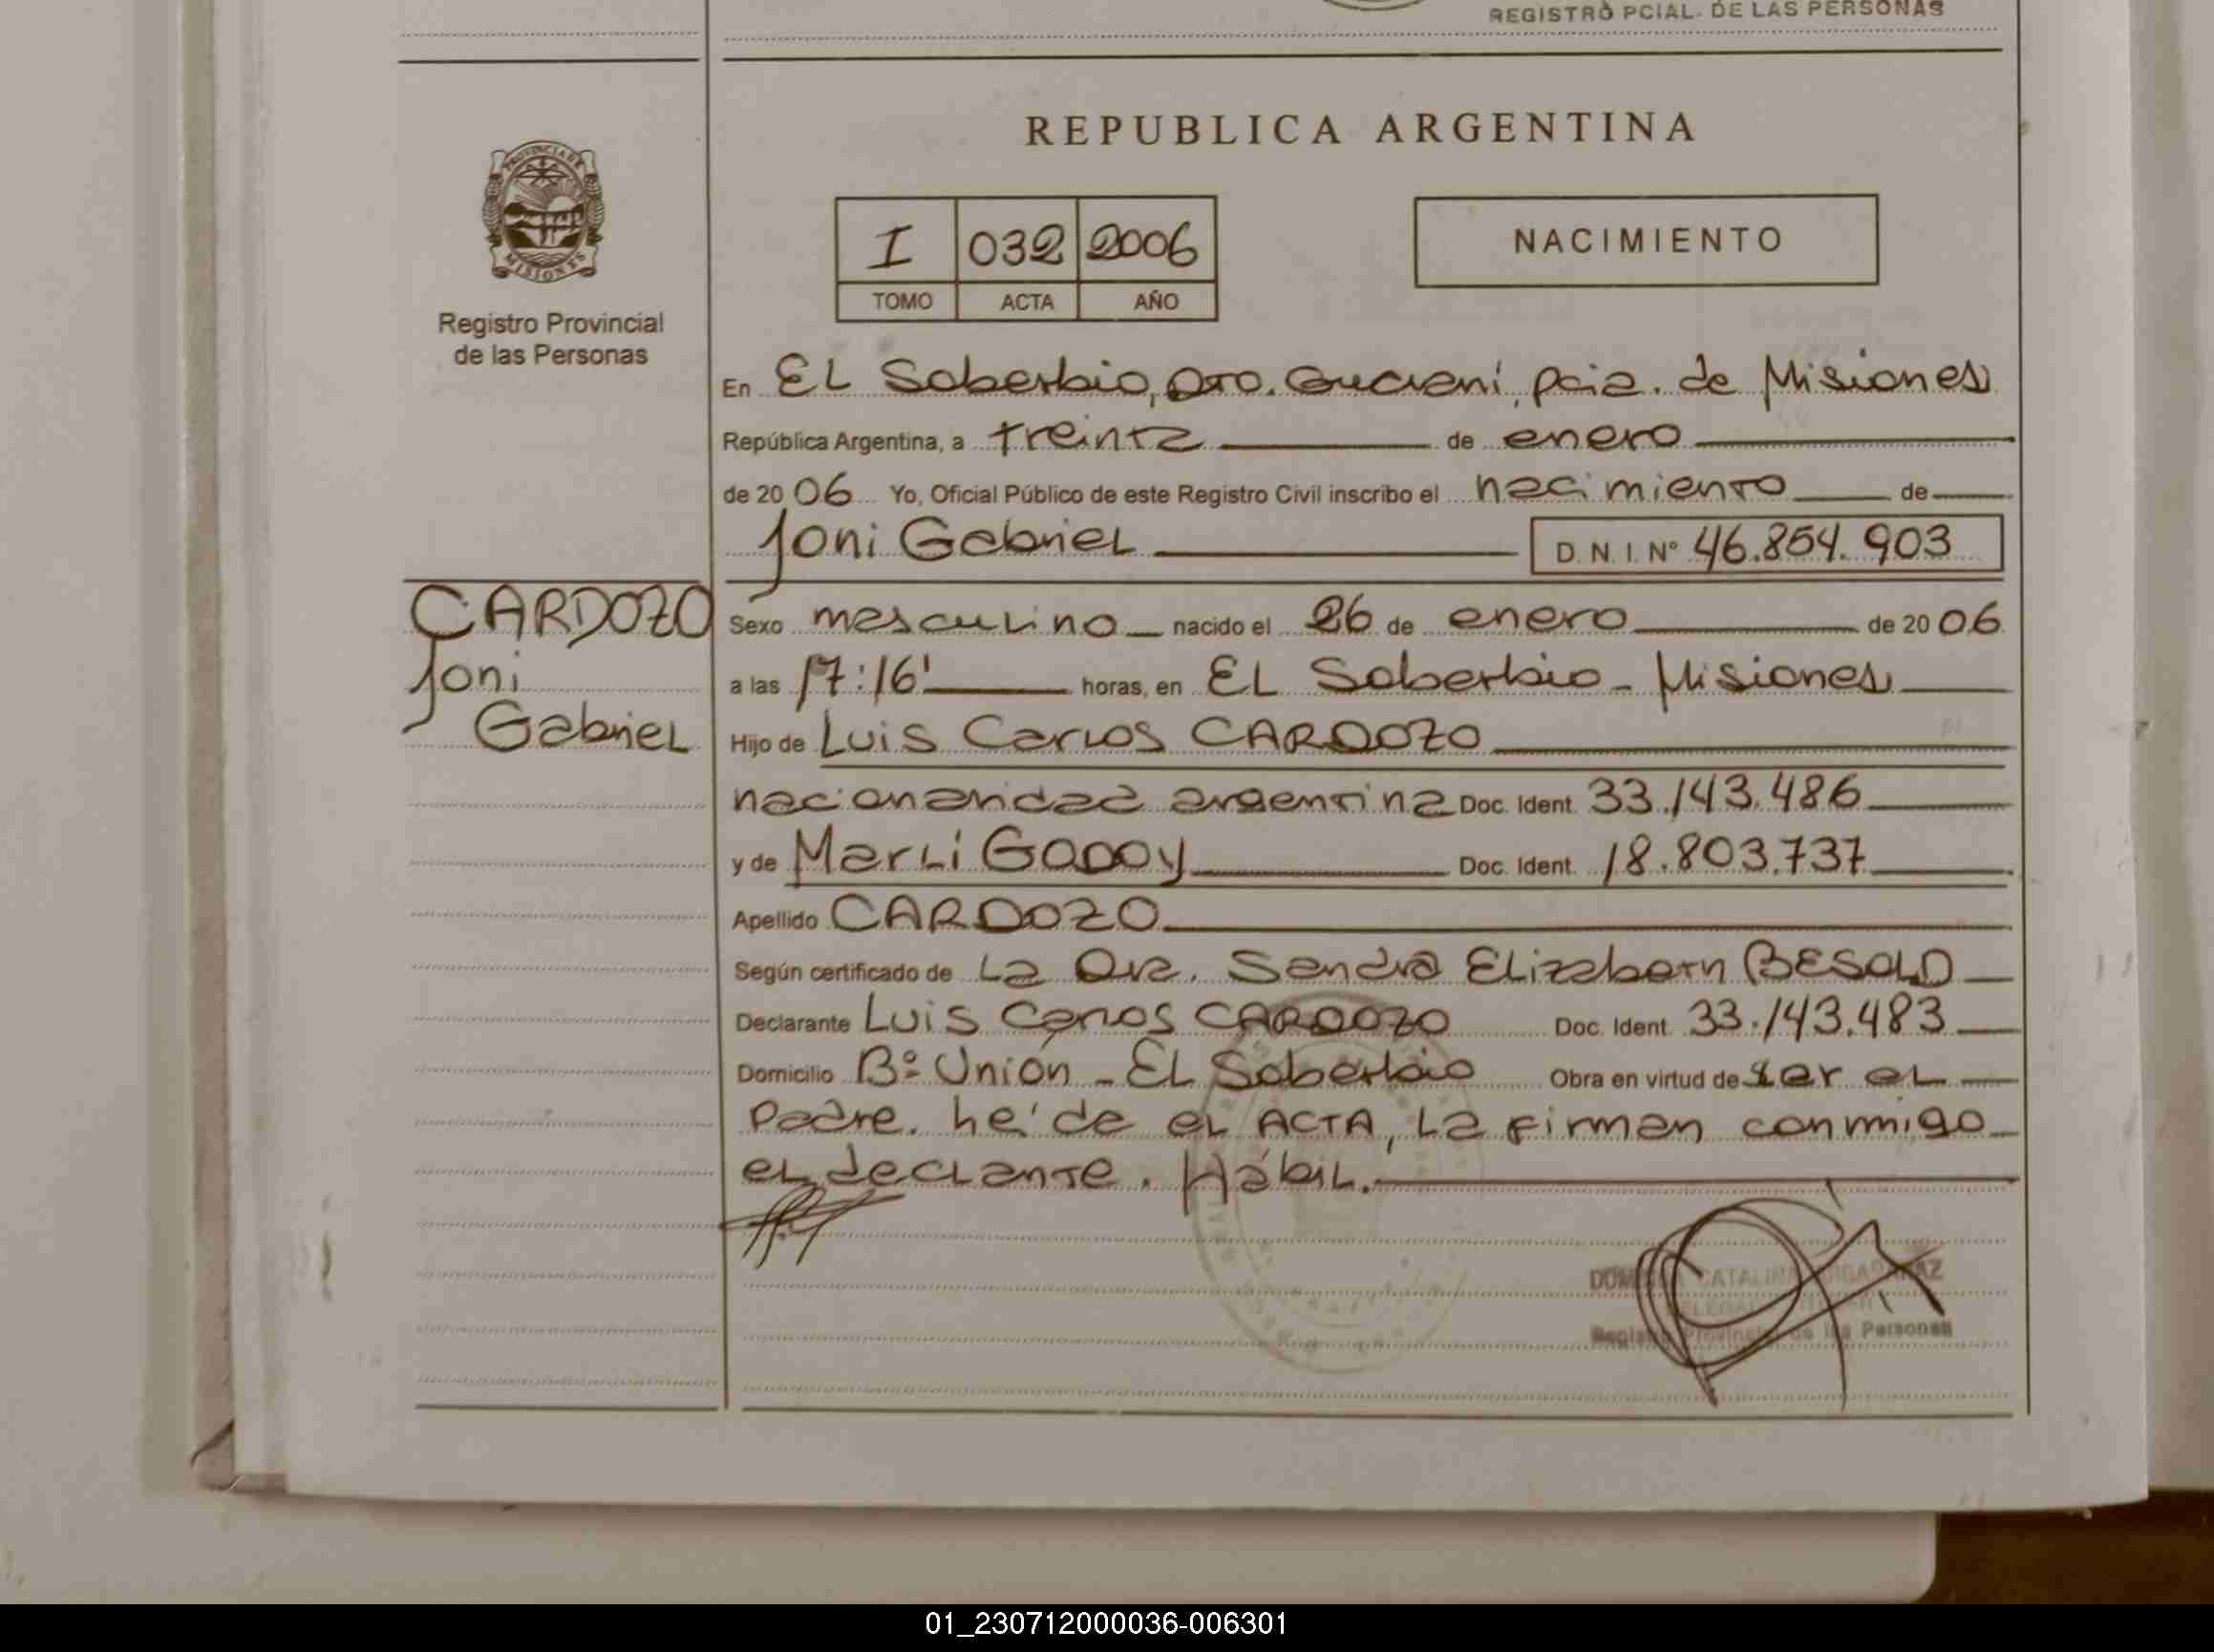 REGISTRO PCIAL. DE LAS PERSONAS
REPUBLICA ARGENTINA
PROVINCIA DE
MISIONES
Registro Provincial
de las Personas
I 032 2006
TOMO ACTA AÑO
NACIMIENTO
En EL Soberbio, Dto. Guaraní, pcia. de Misiones
República Argentina, a treinta de enero
de 2006 Yo, Oficial Público de este Registro Civil inscribo el nacimiento de
Joni Gabriel D.N.I. Nº 46.854.903
CARDOZO
Joni
Gabriel
Sexo masculino nacido el 26 de enero de 2006
a las 17:16' horas, en EL Soberbio - Misiones
Hijo de Luis Carlos CARDOZO
nacionalidad argentina Doc. Ident. 33.143.486
y de Marli GODOY Doc. Ident. 18.803.737
Apellido CARDOZO
Según certificado de La Dra. Sandra Elizabeth BESOLD
Declarante Luis Carlos CARDOZO Doc. Ident. 33.143.483
Domicilio Bº Unión - EL Soberbio Obra en virtud de ser el
Padre. he'de el ACTA, La firman conmigo
el declante. Hábil.
CATALINA
Registro Provincial de las Personas
01_230712000036-006301